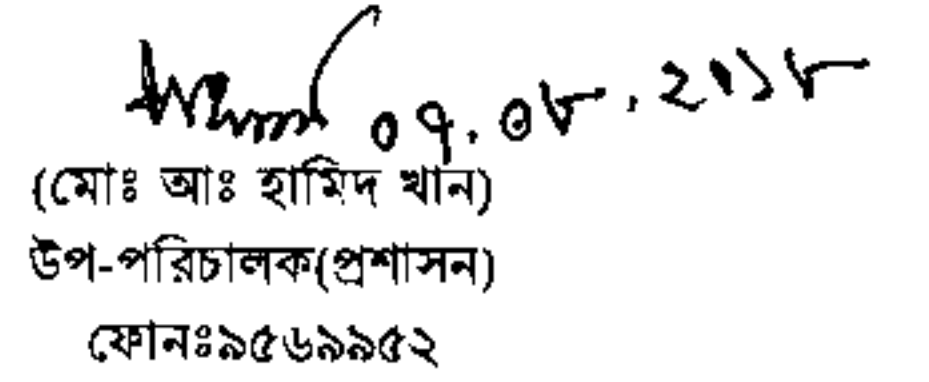 ০৭.০৮.২০১৮
(মোঃ আঃ হামিদ খান)
উপ-পরিচালক(প্রশাসন)
ফোনঃ৯৫৬৯৯৫২